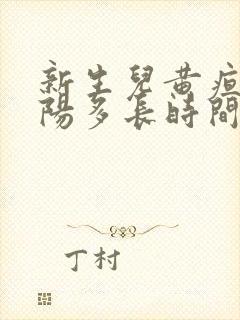 新生兒黃疸
陽多長時間
丁村